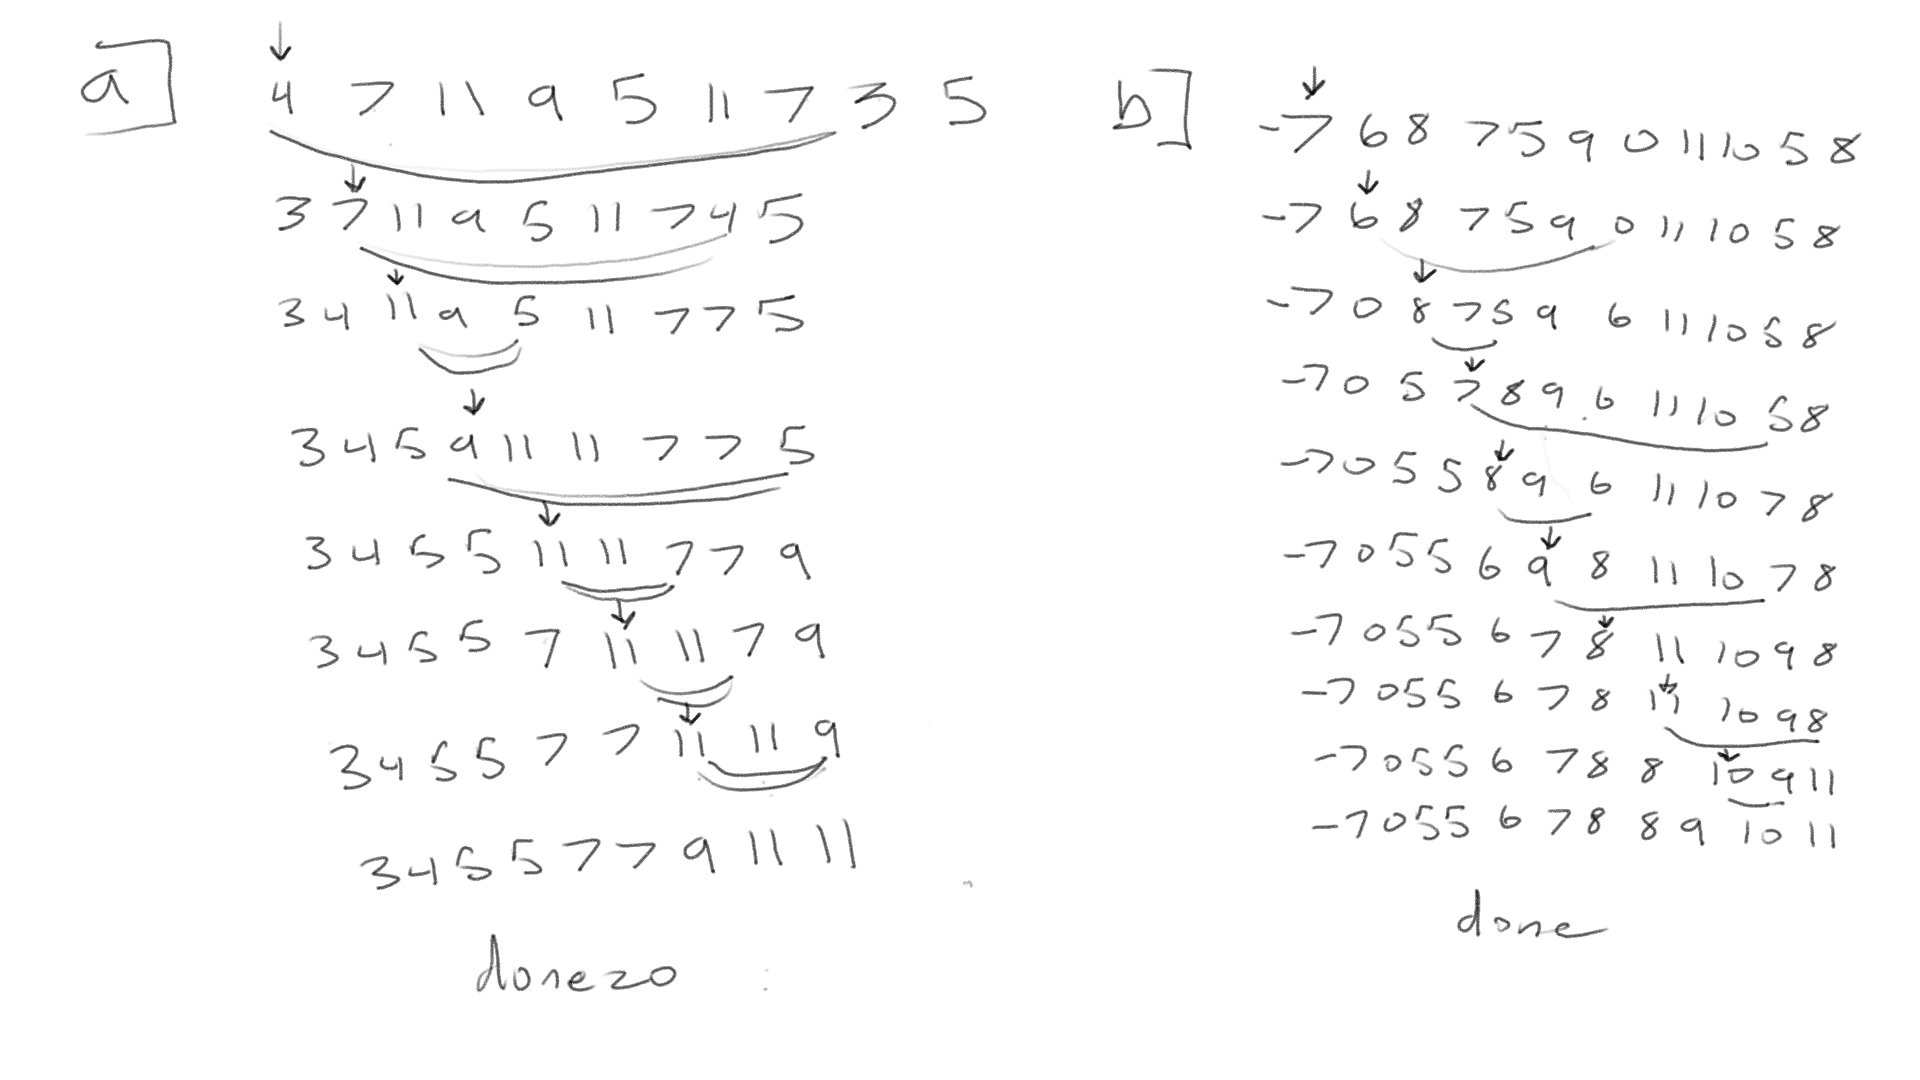 a]
4 7 11 9 5 11 7 3 5
3 7 11 9 5 11 7 4 5
3 4 11 9 5 11 7 7 5
3 4 5 9 11 11 7 7 5
3 4 5 5 11 11 7 7 9
3 4 5 5 7 11 11 7 9
3 4 5 5 7 7 11 11 9
3 4 5 5 7 7 9 11 11
donezo
b]
-7 6 8 7 5 9 0 11 10 5 8
-7 6 8 7 5 9 0 11 10 5 8
-7 0 8 7 5 9 6 11 10 5 8
-7 0 5 7 8 9 6 11 10 5 8
-7 0 5 5 8 9 6 11 10 7 8
-7 0 5 5 6 9 8 11 10 7 8
-7 0 5 5 6 7 8 11 10 9 8
-7 0 5 5 6 7 8 11 10 9 8
-7 0 5 5 6 7 8 8 10 9 11
-7 0 5 5 6 7 8 8 9 10 11
done